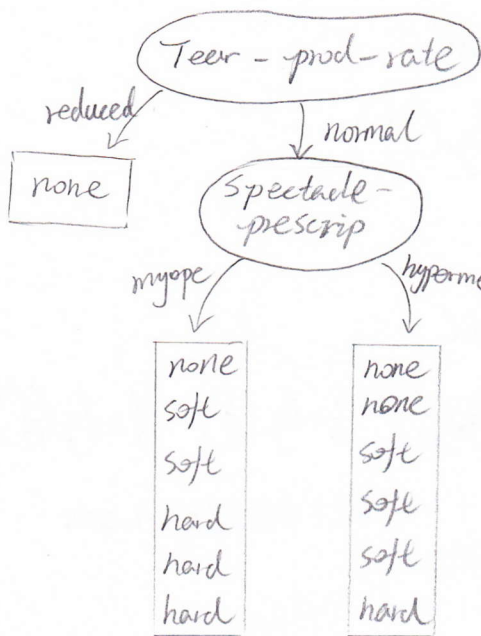 Tear - prod - rate
reduced
normal
none
Spectacle -
prescrip
myope
hyperme
none
soft
soft
hard
hard
hard
none
none
soft
soft
soft
hard